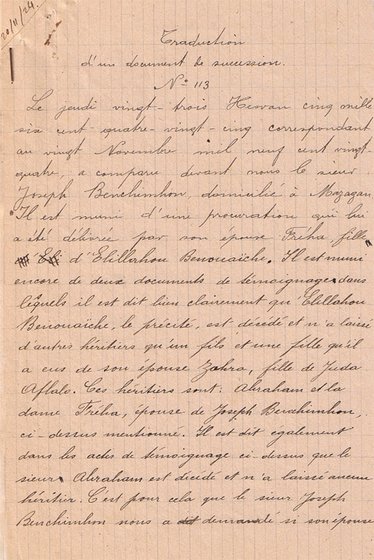 20/11/24.
Traduction
d'un document de succession.
N° 113
Le jeudi vingt-trois Hesvan cinq mille
six cent-quatre-vingt-cinq correspondant
au vingt Novembre mil neuf cent vingt-
quatre, a comparu devant nous le sieur
Joseph Benchimhon, domicilié à Mazagan.
Il est muni d'une procuration qui lui
a été délivrée par son épouse Fréha, fille
d'Elillahou Benouaïche. Il est muni
encore de deux documents de témoignages dans
lesquels il est dit bien clairement qu'Elillahou
Benouaïche, le précité, est décédé et n'a laissé
d'autres héritiers qu'un fils et une fille qu'il
a eus de son épouse Zahra, fille de Juda
Aflalo. Ces héritiers sont: Abraham et la
dame Fréha, épouse de Joseph Benchimhon,
ci-dessus mentionné. Il est dit egalement
dans les actes de témoignage ci-dessus que le
sieur Abraham est décidé et n'a laissé aucun
héritier. C'est pour cela que le sieur Joseph
Benchimhon nous a demandé si son épouse